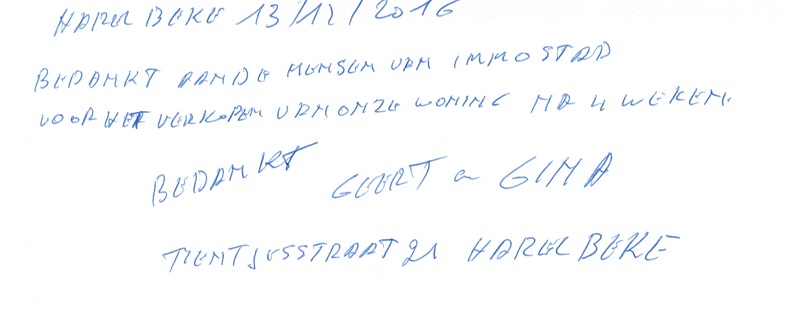 HARELBEKE 13/12/2016
BEDANKT AAN DE MENSEN VAN IMMOSTAD
VOOR HET VERKOPEN VAN ONZE WONING NA 4 WEKEN.
BEDANKT GEERT en GINA
TIENTJESSTRAAT 21 HARELBEKE